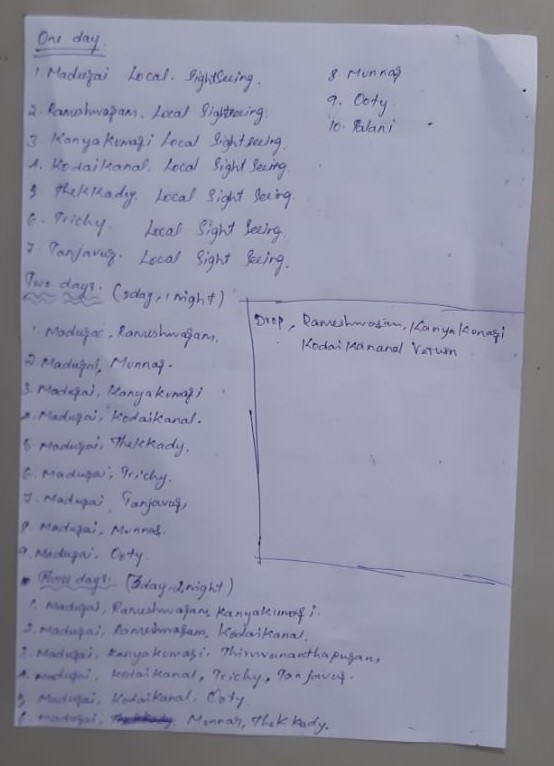 One day.
1. Madurai Local. Sightseeing.
2. Rameshwaram. Local Sightseeing.
3 Kanyakumari Local Sightseeing
4. Kodaikanal. Local Sight Seeing.
5 Thekkady. Local Sight Seeing.
6. Trichy. Local Sight Seeing.
7. Tanjavur. Local Sight Seeing.
8. Munnar
9. Ooty
10. Palani
Two days. (2day, 1 night)
1. Madurai, Rameshwaram.
2 Madurai, Munnar.
3. Madurai, Kanyakumari
4. Madurai, Kodaikanal.
5 Madurai, Thekkady.
6. Madurai, Trichy.
7. Madurai, Tanjavur,
8. Madurai, Munnar.
9. Madurai. Ooty.
Drop, Rameshwaram, Kanyakumari
Kodaikananal Veturn
Three days. (3day-2night)
1. Madurai, Rameshwaram, Kanyakumari.
2. Madurai, Rameshwaram, Kodaikanal.
3. Madurai, Kanyakumari, Thiruvunanthapuram,
4. Madurai, Kodaikanal, Trichy, Tanjavur.
5 Madurai, Kodaikanal, Ooty
6. Madurai, Munnar, Thekkady.